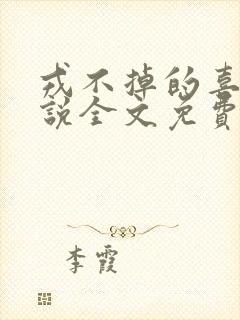 戎不掉的喜
說全文免費
李霞